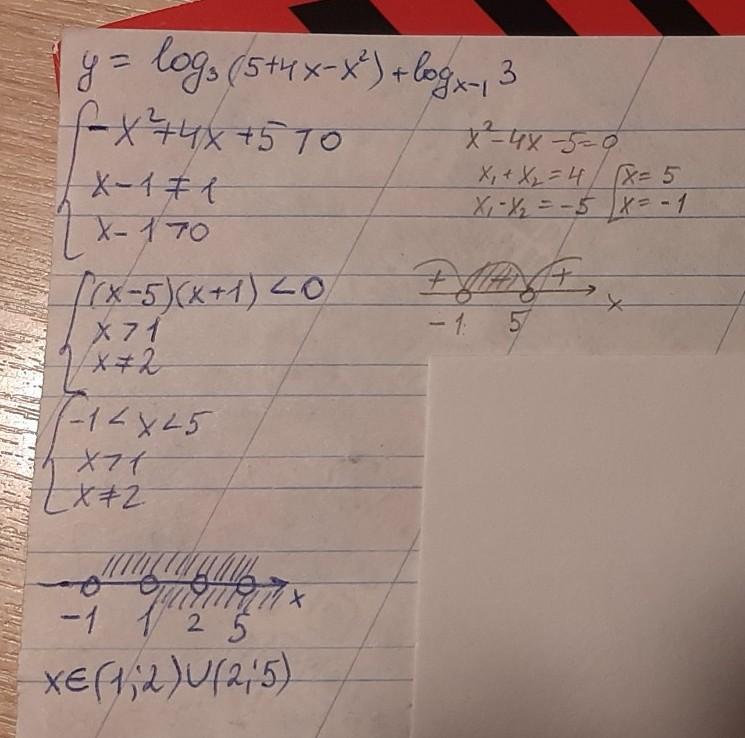 y = log₃(5+4x-x²)+logₓ₋₁ 3
-x²+4x+5>0
x-1≠1
x-1>0
x²-4x-5=0
x₁+x₂=4
x=5
x₁·x₂=-5
x=-1
(x-5)(x+1)<0
x>1
x≠2
+ +
x
-1 5
-1<x<5
x>1
x≠2
x
-1 1 2 5
x∈(1;2)∪(2;5)